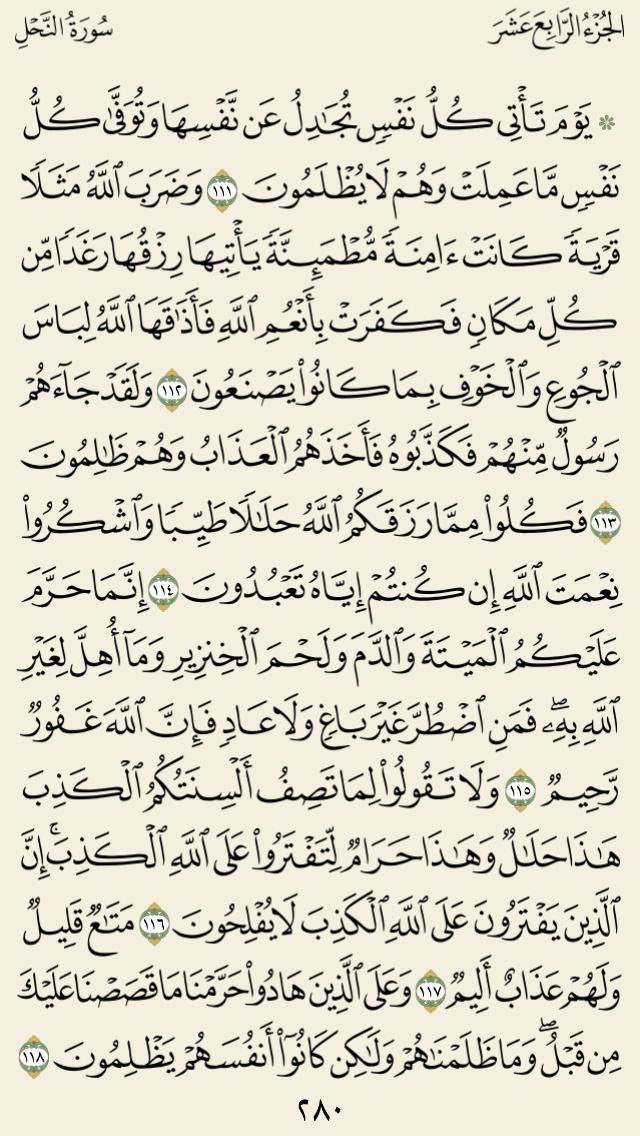 الجُزْءُ الرَّابِعَ عَشَرَ
سُورَةُ النَّحْلِ
۞ يَوْمَ تَأْتِي كُلُّ نَفْسٍ تُجَٰدِلُ عَن نَّفْسِهَا وَتُوَفَّىٰ كُلُّ
نَفْسٍ مَّا عَمِلَتْ وَهُمْ لَا يُظْلَمُونَ ١١١ وَضَرَبَ ٱللَّهُ مَثَلًا
قَرْيَةً كَانَتْ ءَامِنَةً مُّطْمَئِنَّةً يَأْتِيهَا رِزْقُهَا رَغَدًا مِّن
كُلِّ مَكَانٍ فَكَفَرَتْ بِأَنْعُمِ ٱللَّهِ فَأَذَٰقَهَا ٱللَّهُ لِبَاسَ
ٱلْجُوعِ وَٱلْخَوْفِ بِمَا كَانُوا۟ يَصْنَعُونَ ١١٢ وَلَقَدْ جَآءَهُمْ
رَسُولٌ مِّنْهُمْ فَكَذَّبُوهُ فَأَخَذَهُمُ ٱلْعَذَابُ وَهُمْ ظَٰلِمُونَ
١١٣ فَكُلُوا۟ مِمَّا رَزَقَكُمُ ٱللَّهُ حَلَٰلًا طَيِّبًا وَٱشْكُرُوا۟
نِعْمَتَ ٱللَّهِ إِن كُنتُمْ إِيَّاهُ تَعْبُدُونَ ١١٤ إِنَّمَا حَرَّمَ
عَلَيْكُمُ ٱلْمَيْتَةَ وَٱلدَّمَ وَلَحْمَ ٱلْخِنزِيرِ وَمَآ أُهِلَّ لِغَيْرِ
ٱللَّهِ بِهِۦۖ فَمَنِ ٱضْطُرَّ غَيْرَ بَاغٍ وَلَا عَادٍ فَإِنَّ ٱللَّهَ غَفُورٌ
رَّحِيمٌ ١١٥ وَلَا تَقُولُوا۟ لِمَا تَصِفُ أَلْسِنَتُكُمُ ٱلْكَذِبَ
هَٰذَا حَلَٰلٌ وَهَٰذَا حَرَامٌ لِّتَفْتَرُوا۟ عَلَى ٱللَّهِ ٱلْكَذِبَۚ إِنَّ
ٱلَّذِينَ يَفْتَرُونَ عَلَى ٱللَّهِ ٱلْكَذِبَ لَا يُفْلِحُونَ ١١٦ مَتَٰعٌ قَلِيلٌ
وَلَهُمْ عَذَابٌ أَلِيمٌ ١١٧ وَعَلَى ٱلَّذِينَ هَادُوا۟ حَرَّمْنَا مَا قَصَصْنَا عَلَيْكَ
مِن قَبْلُۖ وَمَا ظَلَمْنَٰهُمْ وَلَٰكِن كَانُوٓا۟ أَنفُسَهُمْ يَظْلِمُونَ ١١٨
٢٨٠